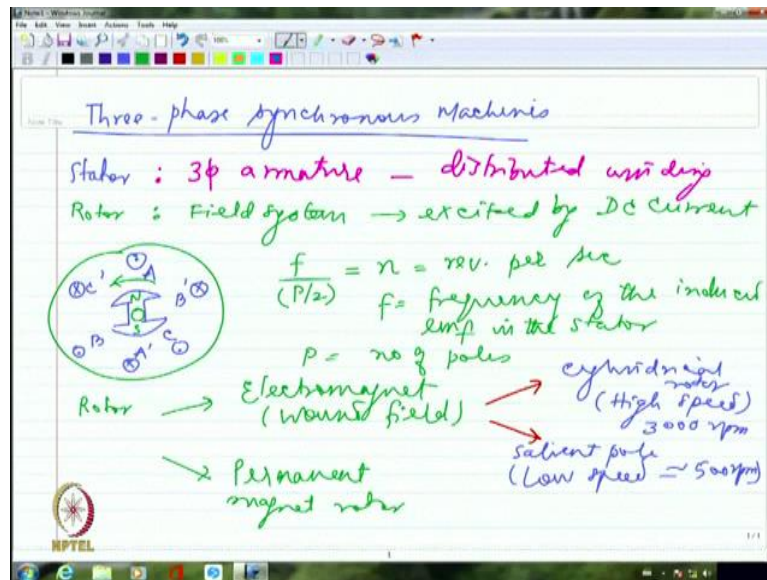 Note1 - Windows Journal
File Edit View Insert Actions Tools Help
100%
B I
Note Title
Three-phase synchronous Machines
Stator : 3φ armature — distributed winding
Rotor : Field system → excited by DC current
f/(P/2) = n = rev. per sec
f = frequency of the induced
emf in the stator
P = no of poles
A
C'
B'
N
S
B
C
A'
Rotor → Electromagnet
(Wound field)
cylindrical
rotor
(High speed)
3000 rpm
salient pole
(Low speed ≈ 500rpm)
→ Permanent
magnet rotor
NPTEL
1/1
1